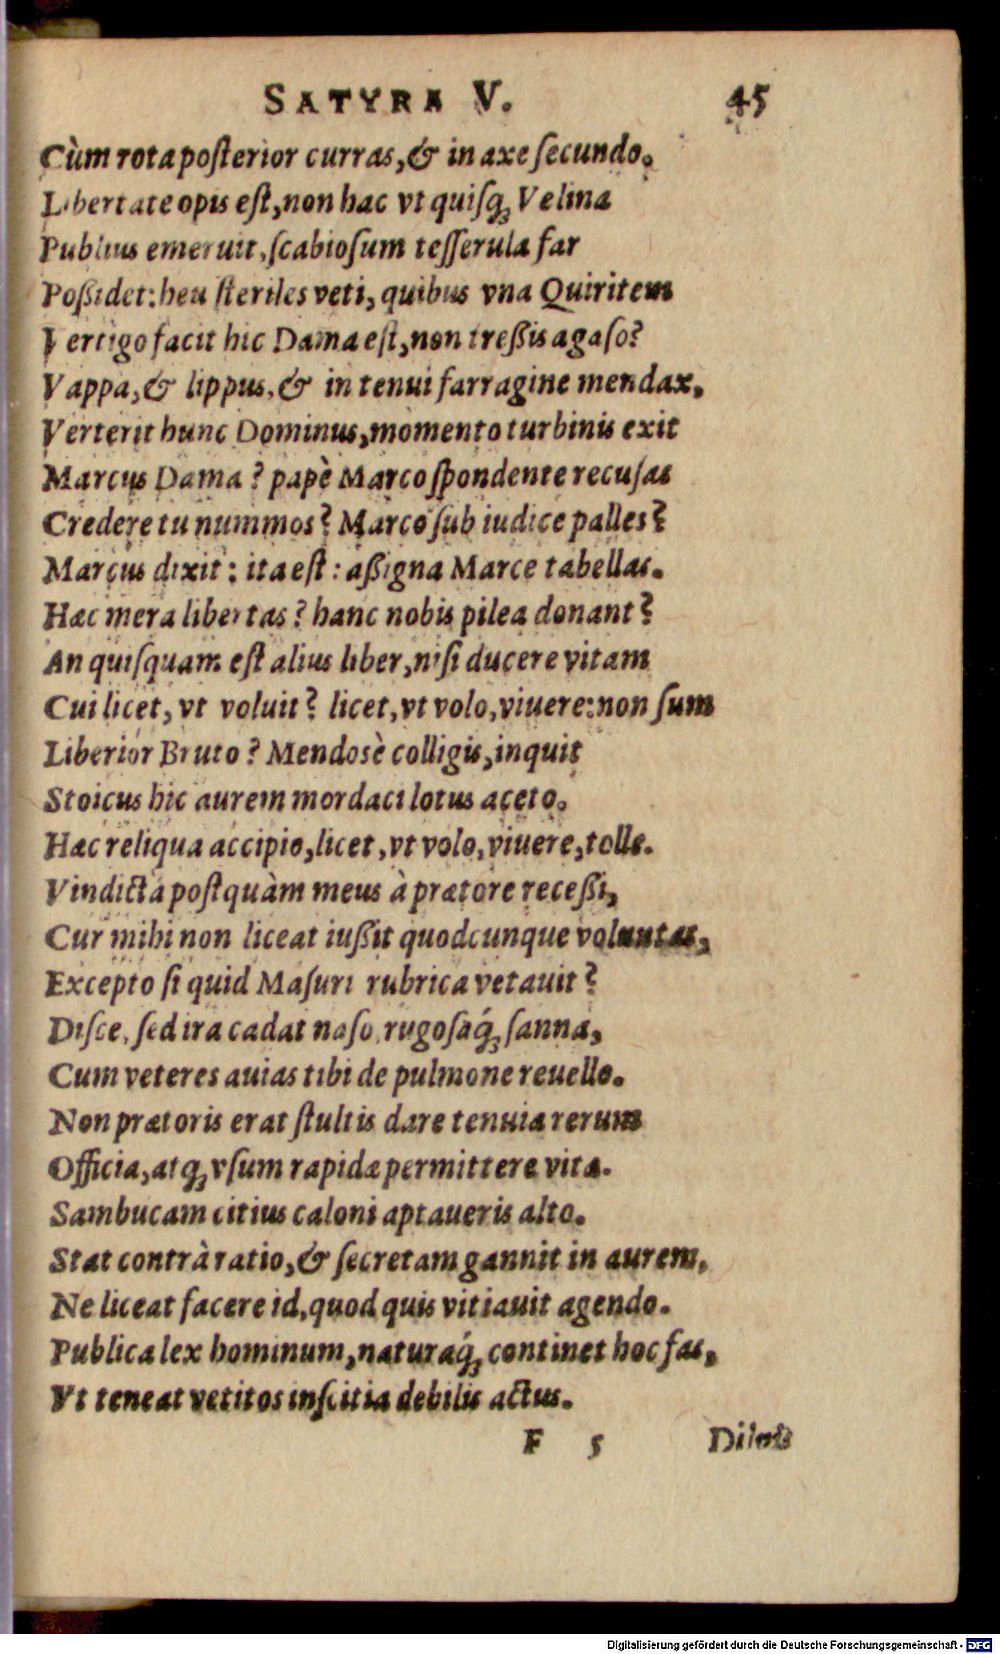 SATYRA V. 45
Cùm rota posterior curras, & in axe secundo.
Libertate opus est, non hac vt quisq; Velina
Publius emeruit, scabiosum tesserula far
Poßidet: heu steriles veri, quibus vna Quiritem
Vertigo facit hic Dama est, non treßis agaso?
Vappa, & lippus, & in tenui farragine mendax.
Verterit hunc Dominus, momento turbinis exit
Marcus Dama? papè Marco spondente recusas
Credere tu nummos? Marco sub iudice palles?
Marcus dixit: ita est: aßigna Marce tabellas.
Hæc mera libertas? hanc nobis pilea donant?
An quisquam est alius liber, nisi ducere vitam
Cui licet, vt voluit? licet, vt volo, viuere: non sum
Liberior Bruto? Mendosè colligis, inquit
Stoicus hic aurem mordaci lotus aceto.
Hæc reliqua accipio, licet, vt volo, viuere, tolle.
Vindicta postquàm meus à prætore receßi,
Cur mihi non liceat iußit quodcunque voluntas,
Excepto si quid Masuri rubrica vetauit?
Disce, sed ira cadat naso, rugosaq́; sanna,
Cum veteres auias tibi de pulmone reuello.
Non prætoris erat stultis dare tenuia rerum
Officia, atq; vsum rapidæ permittere vitæ.
Sambucam citius caloni aptaueris alto.
Stat contrà ratio, & secretam gannit in aurem,
Ne liceat facere id, quod quis vitiauit agendo.
Publica lex hominum, naturaq́; continet hoc fas,
Vt teneat vetitos inscitia debilis actus.
F 5 Diluis
Digitalisierung gefördert durch die Deutsche Forschungsgemeinschaft - DFG